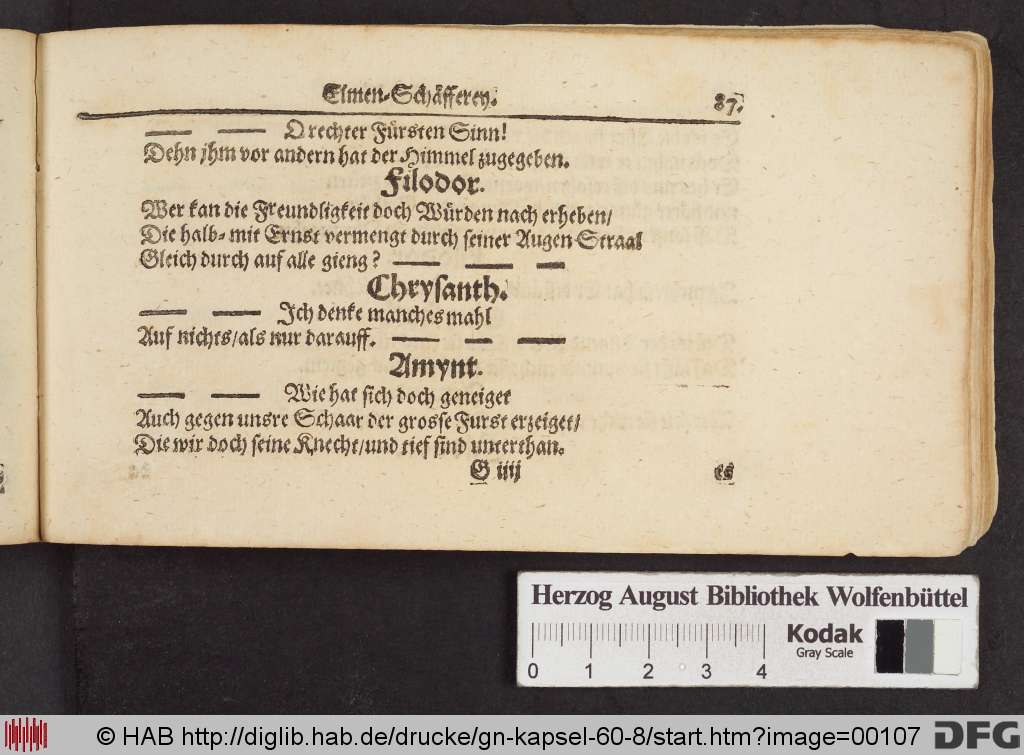 Elmen-Schäfferey.
87.
— — O rechter Fürsten Sinn!
Dehn jhm vor andern hat der Himmel zugegeben.
Filodor.
Wer kan die Freundligkeit doch Würden nach erheben/
Die halb- mit Ernst vermengt durch seiner Augen Straal
Gleich durch auf alle gieng? — — —
Chrysanth.
— — Jch denke manches mahl
Auf nichts/als nur darauff. — — —
Amynt.
— — Wie hat sich doch geneiget
Auch gegen unsre Schaar der grosse Furst erzeiget/
Die wir doch seine Knecht/und tief sind unterthan.
G iiij
es
Herzog August Bibliothek Wolfenbüttel
Kodak
Gray Scale
0 1 2 3 4
© HAB http://diglib.hab.de/drucke/gn-kapsel-60-8/start.htm?image=00107
DFG